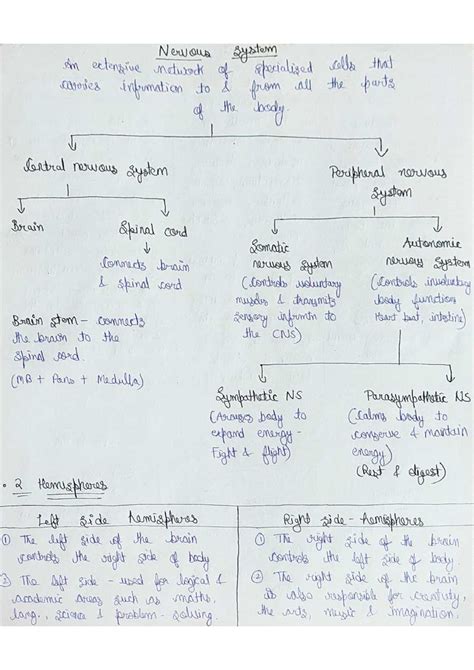 Nervous System
An extensive network of specialized cells that
carries infrmation to & from all the parts
of the body.
Central nervous system
Peripheral nervous
System
Brain
Spinal cord
Connects brain
& spinal cord
Somatic
nervous system
(Controls voluntary
muscles & transmits
sensory infrmtn to
the CNS)
Autonomic
nervous System
(Controls involuntary
body function
Heart beat, intestine)
Brain stem - connects
the brain to the
spinal cord.
(MB + Pons + Medulla)
Sympathetic NS
(Arouses body to
expand energy -
Fight & flight)
Parasympathetic NS
(Calms body to
conserve & mantain
energy)
(Rest & digest)
• 2 Hemispheres
Left side hemispheres
① The left side of the brain
controls the right side of body
② The left side - used for logical &
academic areas such as maths,
lang., science & problem-solving.
Right side - Hemispheres
① The right side of the brain
controls the left side of body.
② The right side of the brain
is also responsible for creatuty,
the arts, music & imagination.